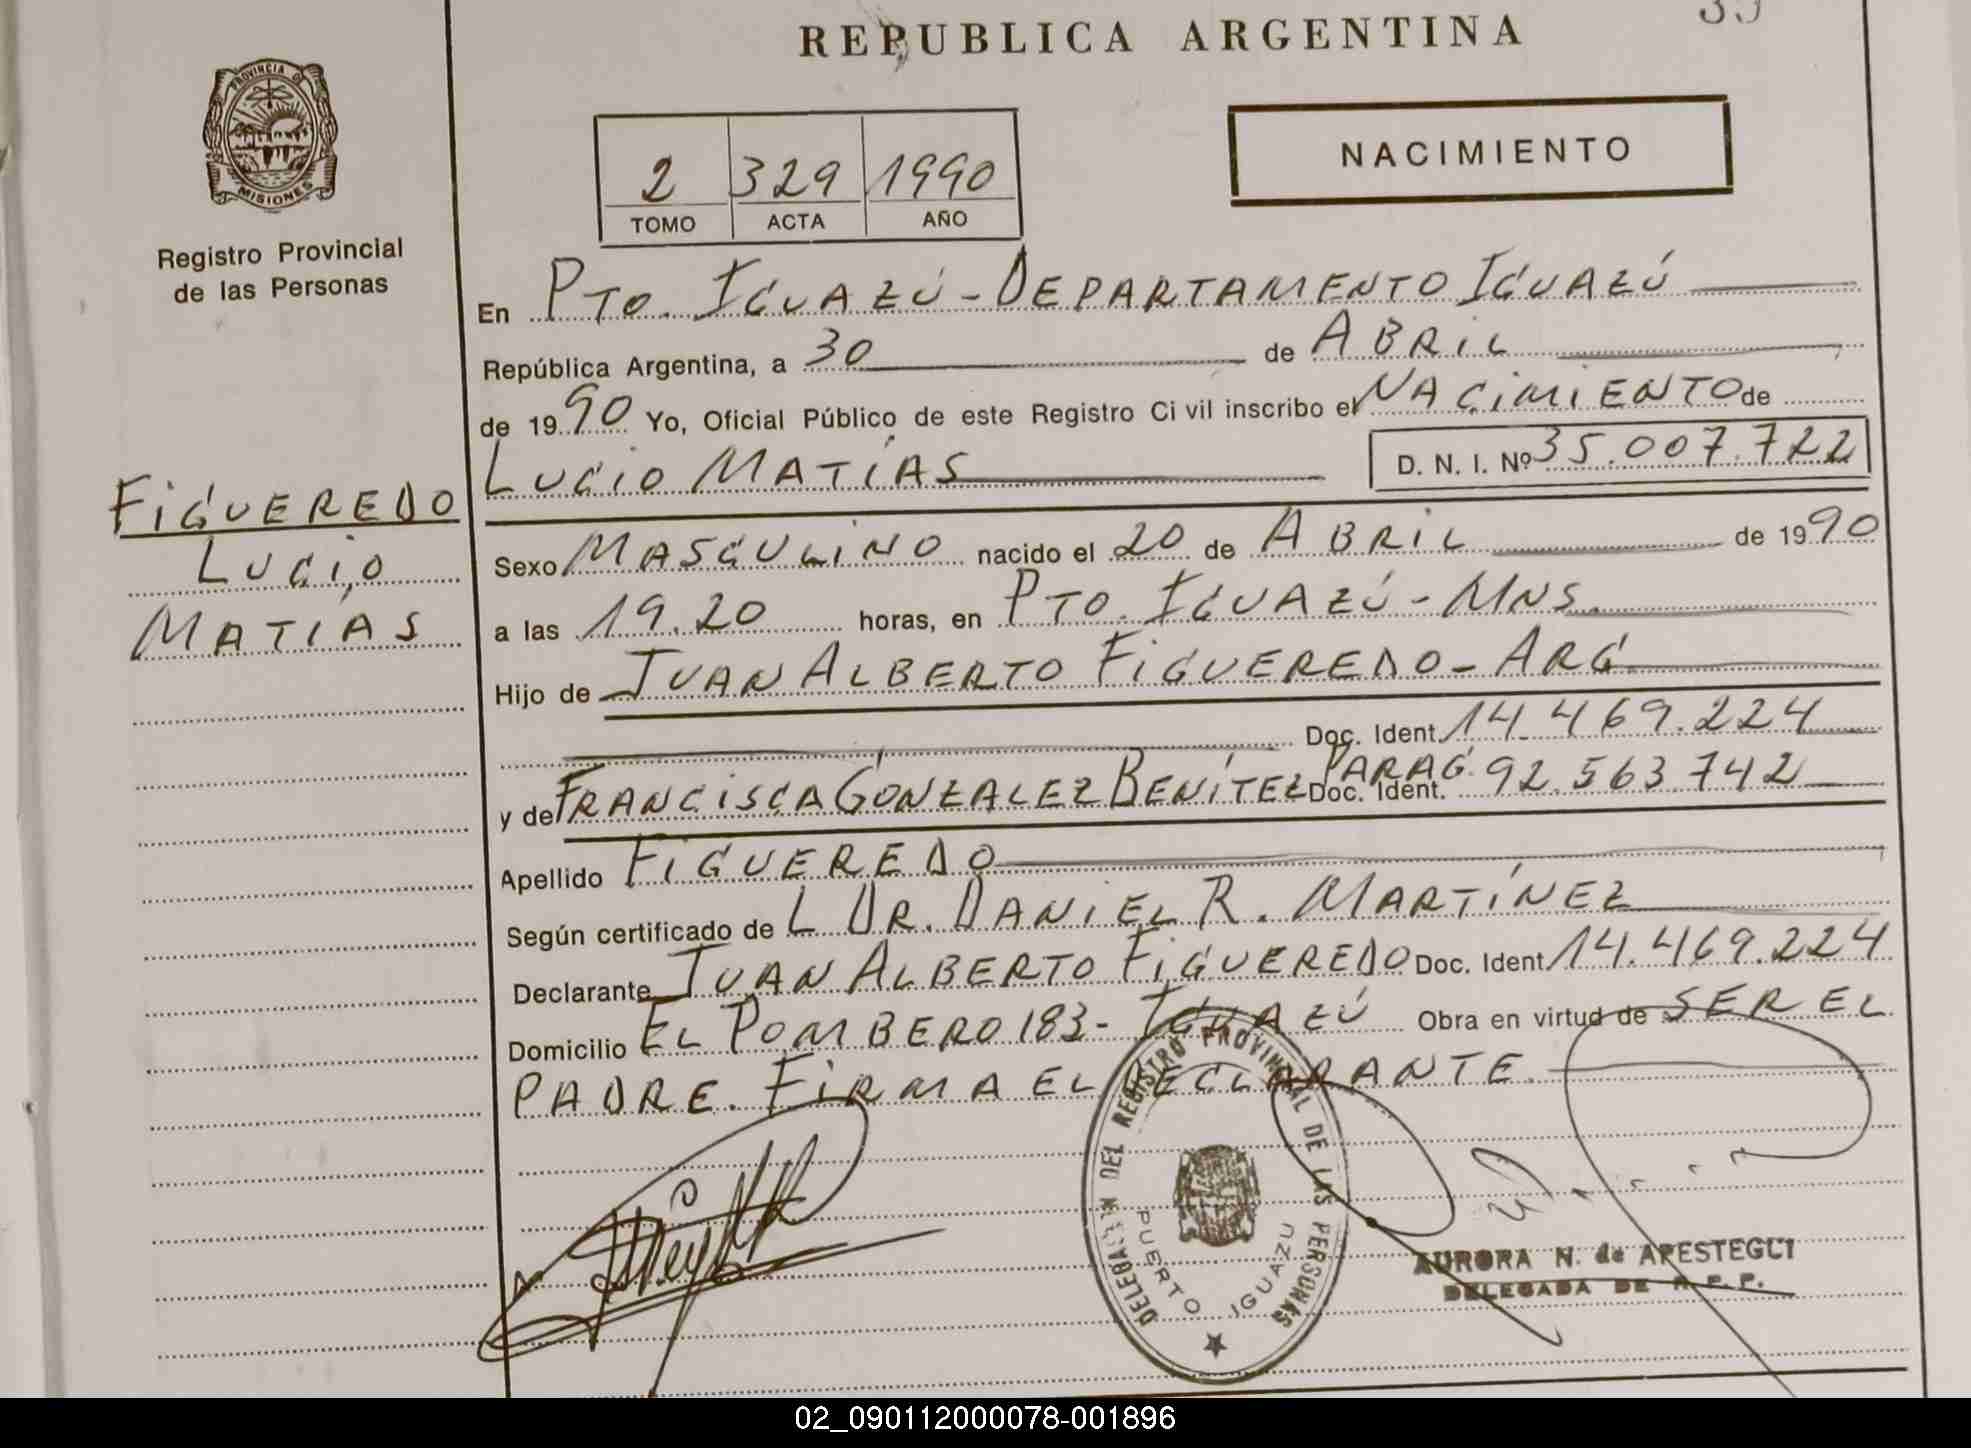 REPUBLICA ARGENTINA
PROVINCIA D
MISIONES
Registro Provincial
de las Personas
2 329 1990
TOMO ACTA AÑO
NACIMIENTO
En PTO. IGUAZÚ - DEPARTAMENTO IGUAZÚ
República Argentina, a 30 de ABRIL
de 1990 Yo, Oficial Público de este Registro Ci vil inscribo el NACIMIENTO de
LUCIO MATÍAS D. N. I. Nº 35.007.722
FIGUEREDO
LUCIO
MATÍAS
Sexo MASCULINO nacido el 20 de ABRIL de 1990
a las 19.20 horas, en PTO. IGUAZÚ - MNS.
Hijo de JUAN ALBERTO FIGUEREDO - ARG.
Doc. Ident. 14.469.224
y de FRANCISCA GONZALEZ BENÍTEZ PARAG. Doc. Ident. 92.563.742
Apellido FIGUEREDO
Según certificado de L DR. DANIEL R. MARTÍNEZ
Declarante JUAN ALBERTO FIGUEREDO Doc. Ident. 14.469.224
Domicilio EL POMBERO 183 - IGUAZÚ Obra en virtud de SER EL
PADRE. FIRMA EL DECLARANTE.
DELEGACIÓN DEL REGISTRO PROVINCIAL DE LAS PERSONAS
PUERTO IGUAZU
AURORA N. de APESTEGUI
DELEGADA DE R. P. P.
02_090112000078-001896